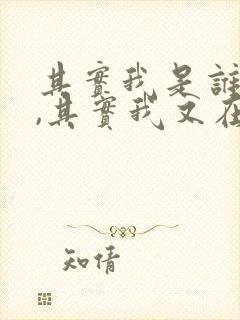 其實我是誰
,其實我又在
知情